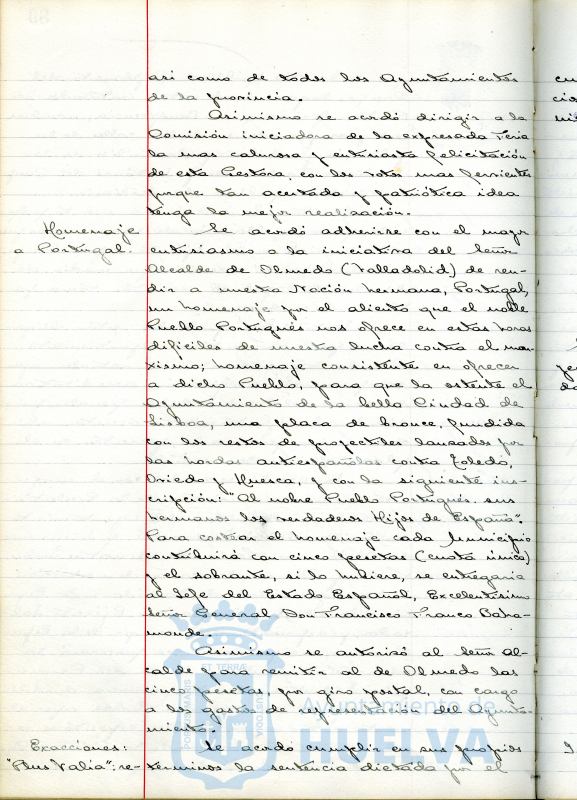 así como de todos los Ayuntamientos
de la provincia.
Asimismo se acordó dirigir a la
Comisión iniciadora de la expresada Feria
la mas calurosa y entusiasta felicitación
de esta Gestora, con los votos mas fervientes
porque tan acertada y patriótica idea
tenga la mejor realización.
Homenaje
a Portugal.
Se acordó adherirse con el mayor
entusiasmo a la iniciativa del Señor
Alcalde de Olmedo (Valladolid) de ren-
dir a nuestra Nación hermana, Portugal,
un homenaje por el aliento que el noble
Pueblo Portugués nos ofrece en estas horas
dificiles de nuestra lucha contra el mar-
xismo; homenaje consistente en ofrecer
a dicho Pueblo, para que la ostente el
Ayuntamiento de la bella Ciudad de
Lisboa, una placa de bronce, fundida
con los restos de proyectiles lanzados por
las hordas antiespañolas contra Toledo,
Oviedo y Huesca, y con la siguiente ins-
cripción: "Al noble Pueblo Portugués sus
hermanos los verdaderos Hijos de España".
Para costear el homenaje cada Municipio
contribuirá con cinco pesetas (cuota única)
y el sobrante, si lo hubiere, se entregaria
al Jefe del Estado Español, Excelentísimo
Señor General Don Francisco Franco Baha-
monde.
Asimismo se autorizó al Señor Al-
calde para remitir al de Olmedo las
cinco pesetas, por giro postal, con cargo
a los gastos de representación del Ayunta-
miento.
Exacciones:
"Plus Valia": re-
Se acordó cumplir en sus propios
términos la sentencia dictada por el
Ayuntamiento de
HUELVA